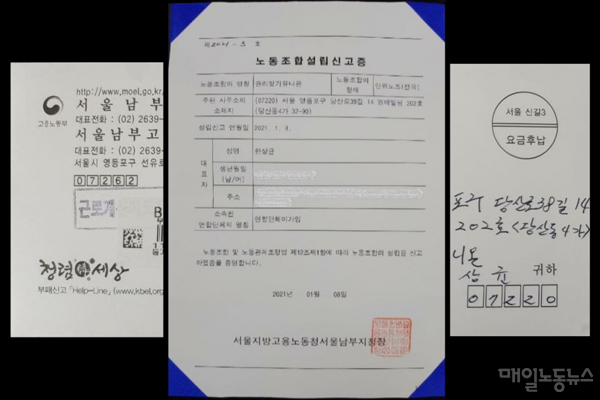 http://www.moel.go.kr
서울남부
고용노동부
대표전화 : 02) 2639-
서울남부고
대표전화 : 02) 2639-
서울시 영등포구 선유로
07262
근로개
청렴 세상
부패신고「Help-Line」(www.kbei.org
제2021-3호
노동조합설립신고증
노동조합의 명칭 권리찾기유니온 노동조합의 형태 단위노조(전국)
주된 사무소의 소재지 (07220) 서울 영등포구 당산로38길 14 202호
(당산동4가 32-90)
설립신고 연월일 2021. 1. 8.
대표자
성명 한상균
생년월일
(남/여)
주소
소속된
연합단체의 명칭 연합단체미가입
노동조합 및 노동관계조정법 제12조제1항에 따라 노동조합의 설립을 신고
하였음을 증명합니다.
2021년 01월 08일
서울지방고용노동청서울남부지청장
서울 신길3
요금후납
포구 당산로38길 14
202호 (당산동4가)
니온
상균 귀하
07220
매일노동뉴스